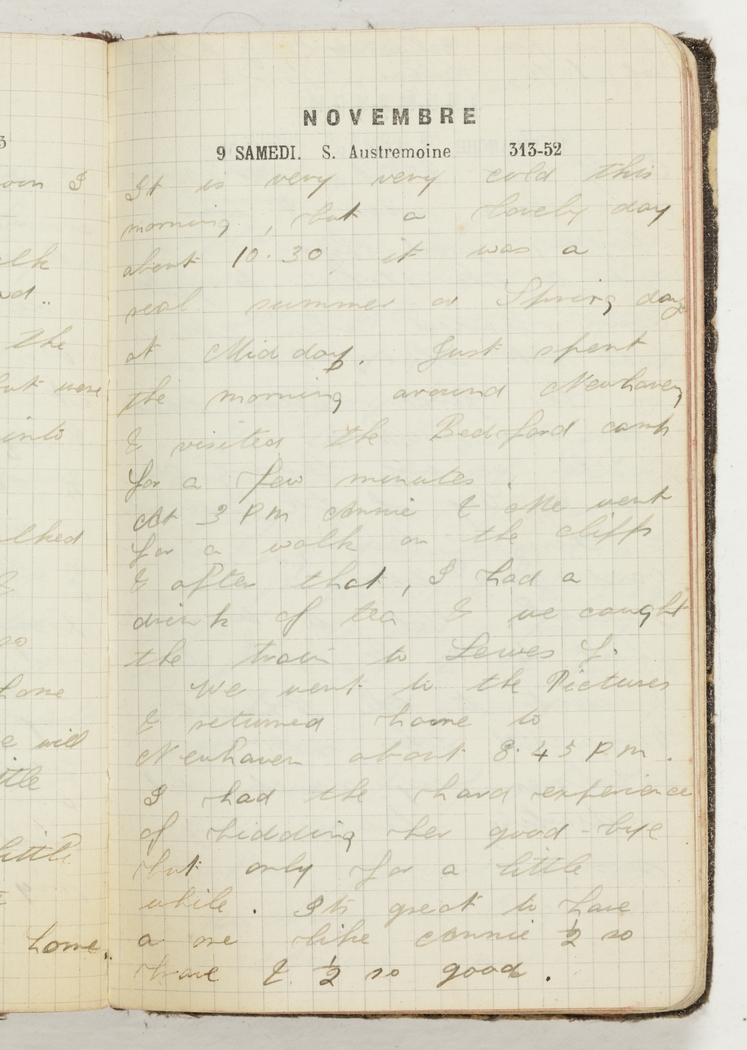 3
oon I
alk
nd..
the
but were
into
alked
&
so
home
e will
ttle
little
home..
NOVEMBRE
9 SAMEDI. S. Austremoine 313-52
It is very very cold this
morning, but a lovely day
about 10.30 it was a
real summer or Spring day
at Mid day. Just spent
the morning around Newhaven
& visited the Bedford camp
for a few minutes.
At 3 PM Annie & me went
for a walk on the cliffs
& after that, I had a
drink of tea & we caught
the train to Lewes
We went to the Pictures
& returned home to
Newhaven about 8.45 PM.
I had the hard experience
of bidding her good-bye
but only for a little
while. Its great to have
a one like Annie ½ so
& ½ so good.